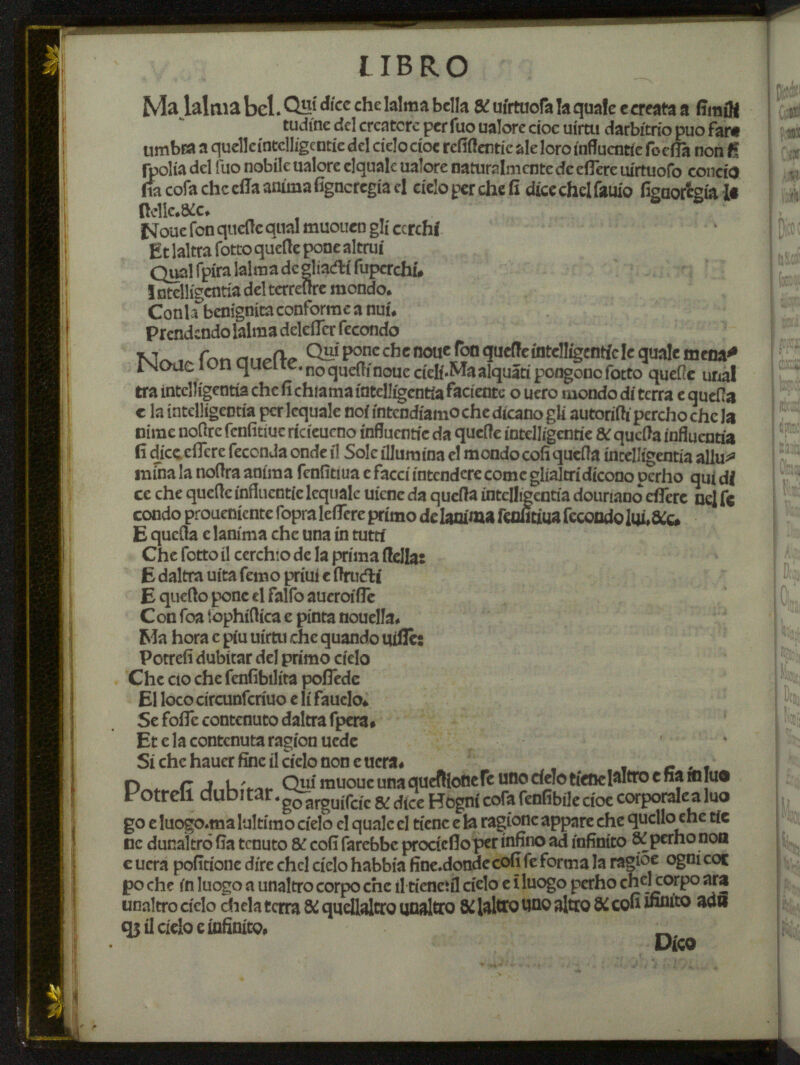 LIBRO
Ma lalma bel. Qui dice che lalma bella & uirtuosa la quale e creata a simili
tudine del creatore per suo ualore cioe uirtu darbitrio puo fare
umbra a quelle intelligentie del cielo cioe resistentie ale loro influentie se essa non si
spolia del suo nobile ualore elquale ualore naturalmente de essere uirtuoso concio
sia cosa che essa anima signoregia el cielo per che si dice chel sauio signoregia le
stelle.&c.
Noue son queste qual muouen gli cerchi
Et laltra sotto queste pone altrui
Qual spira lalma de gliacti superchi.
Intelligentia del terrestre mondo.
Con la benignita conforme a nui.
Prendendo lalma delesser secondo
Noue son queste. Qui pone che noue son queste intelligentie le quale mena
no questi noue cieli. Ma alquāti pongono sotto queste unal
tra intelligentia che si chiama intelligentia faciente o uero mondo di terra e questa
e la intelligentia per lequale noi intendiamo che dicano gli autoristi percho che la
nime nostre sensitiue riceueno influentie da queste intelligentie & questa influentia
si dice essere seconda onde il Sole illumina el mondo cosi questa intelligentia allu
mina la nostra anima sensitiua e facci intendere come glialtri dicono perho qui di
ce che queste influentie lequale uiene da questa intelligentia douriano essere nel se
condo proueniente sopra lessere primo de lanima sensitiua secondo lui.&c.
E questa e lanima che una in tutti
Che sotto il cerchio de la prima stella:
E daltra uita semo priui e structi
E questo pone el falso aueroisse
Con soa sophistica e pinta nouella.
Ma hora e piu uirtu che quando uisse:
Potresi dubitar del primo cielo
Che cio che sensibilita possede
El loco circunscriuo e li fauelo.
Se fosse contenuto daltra spera.
Et e la contenuta ragion uede
Si che hauer fine il cielo non e uera.
Potresi dubitar. Qui muoue una questione se uno cielo tiene laltro e sia in luo
go arguiscie & dice Hogni cosa sensibile cioe corporale a luo
go e luogo.ma lultimo cielo el quale el tiene e la ragione appare che quello che tie
ne dunaltro sia tenuto & cosi sarebbe prociesso per infino ad infinito & perho non
e uera positione dire chel cielo habbia fine.donde cosi se forma la ragiōe ogni cor
po che in luogo a unaltro corpo che il tiene:il cielo e i luogo perho chel corpo ara
unaltro cielo chela terra & quellaltro unaltro & laltro uno altro & cosi ifinito adū
qꝫ il cielo e infinito.
Dico